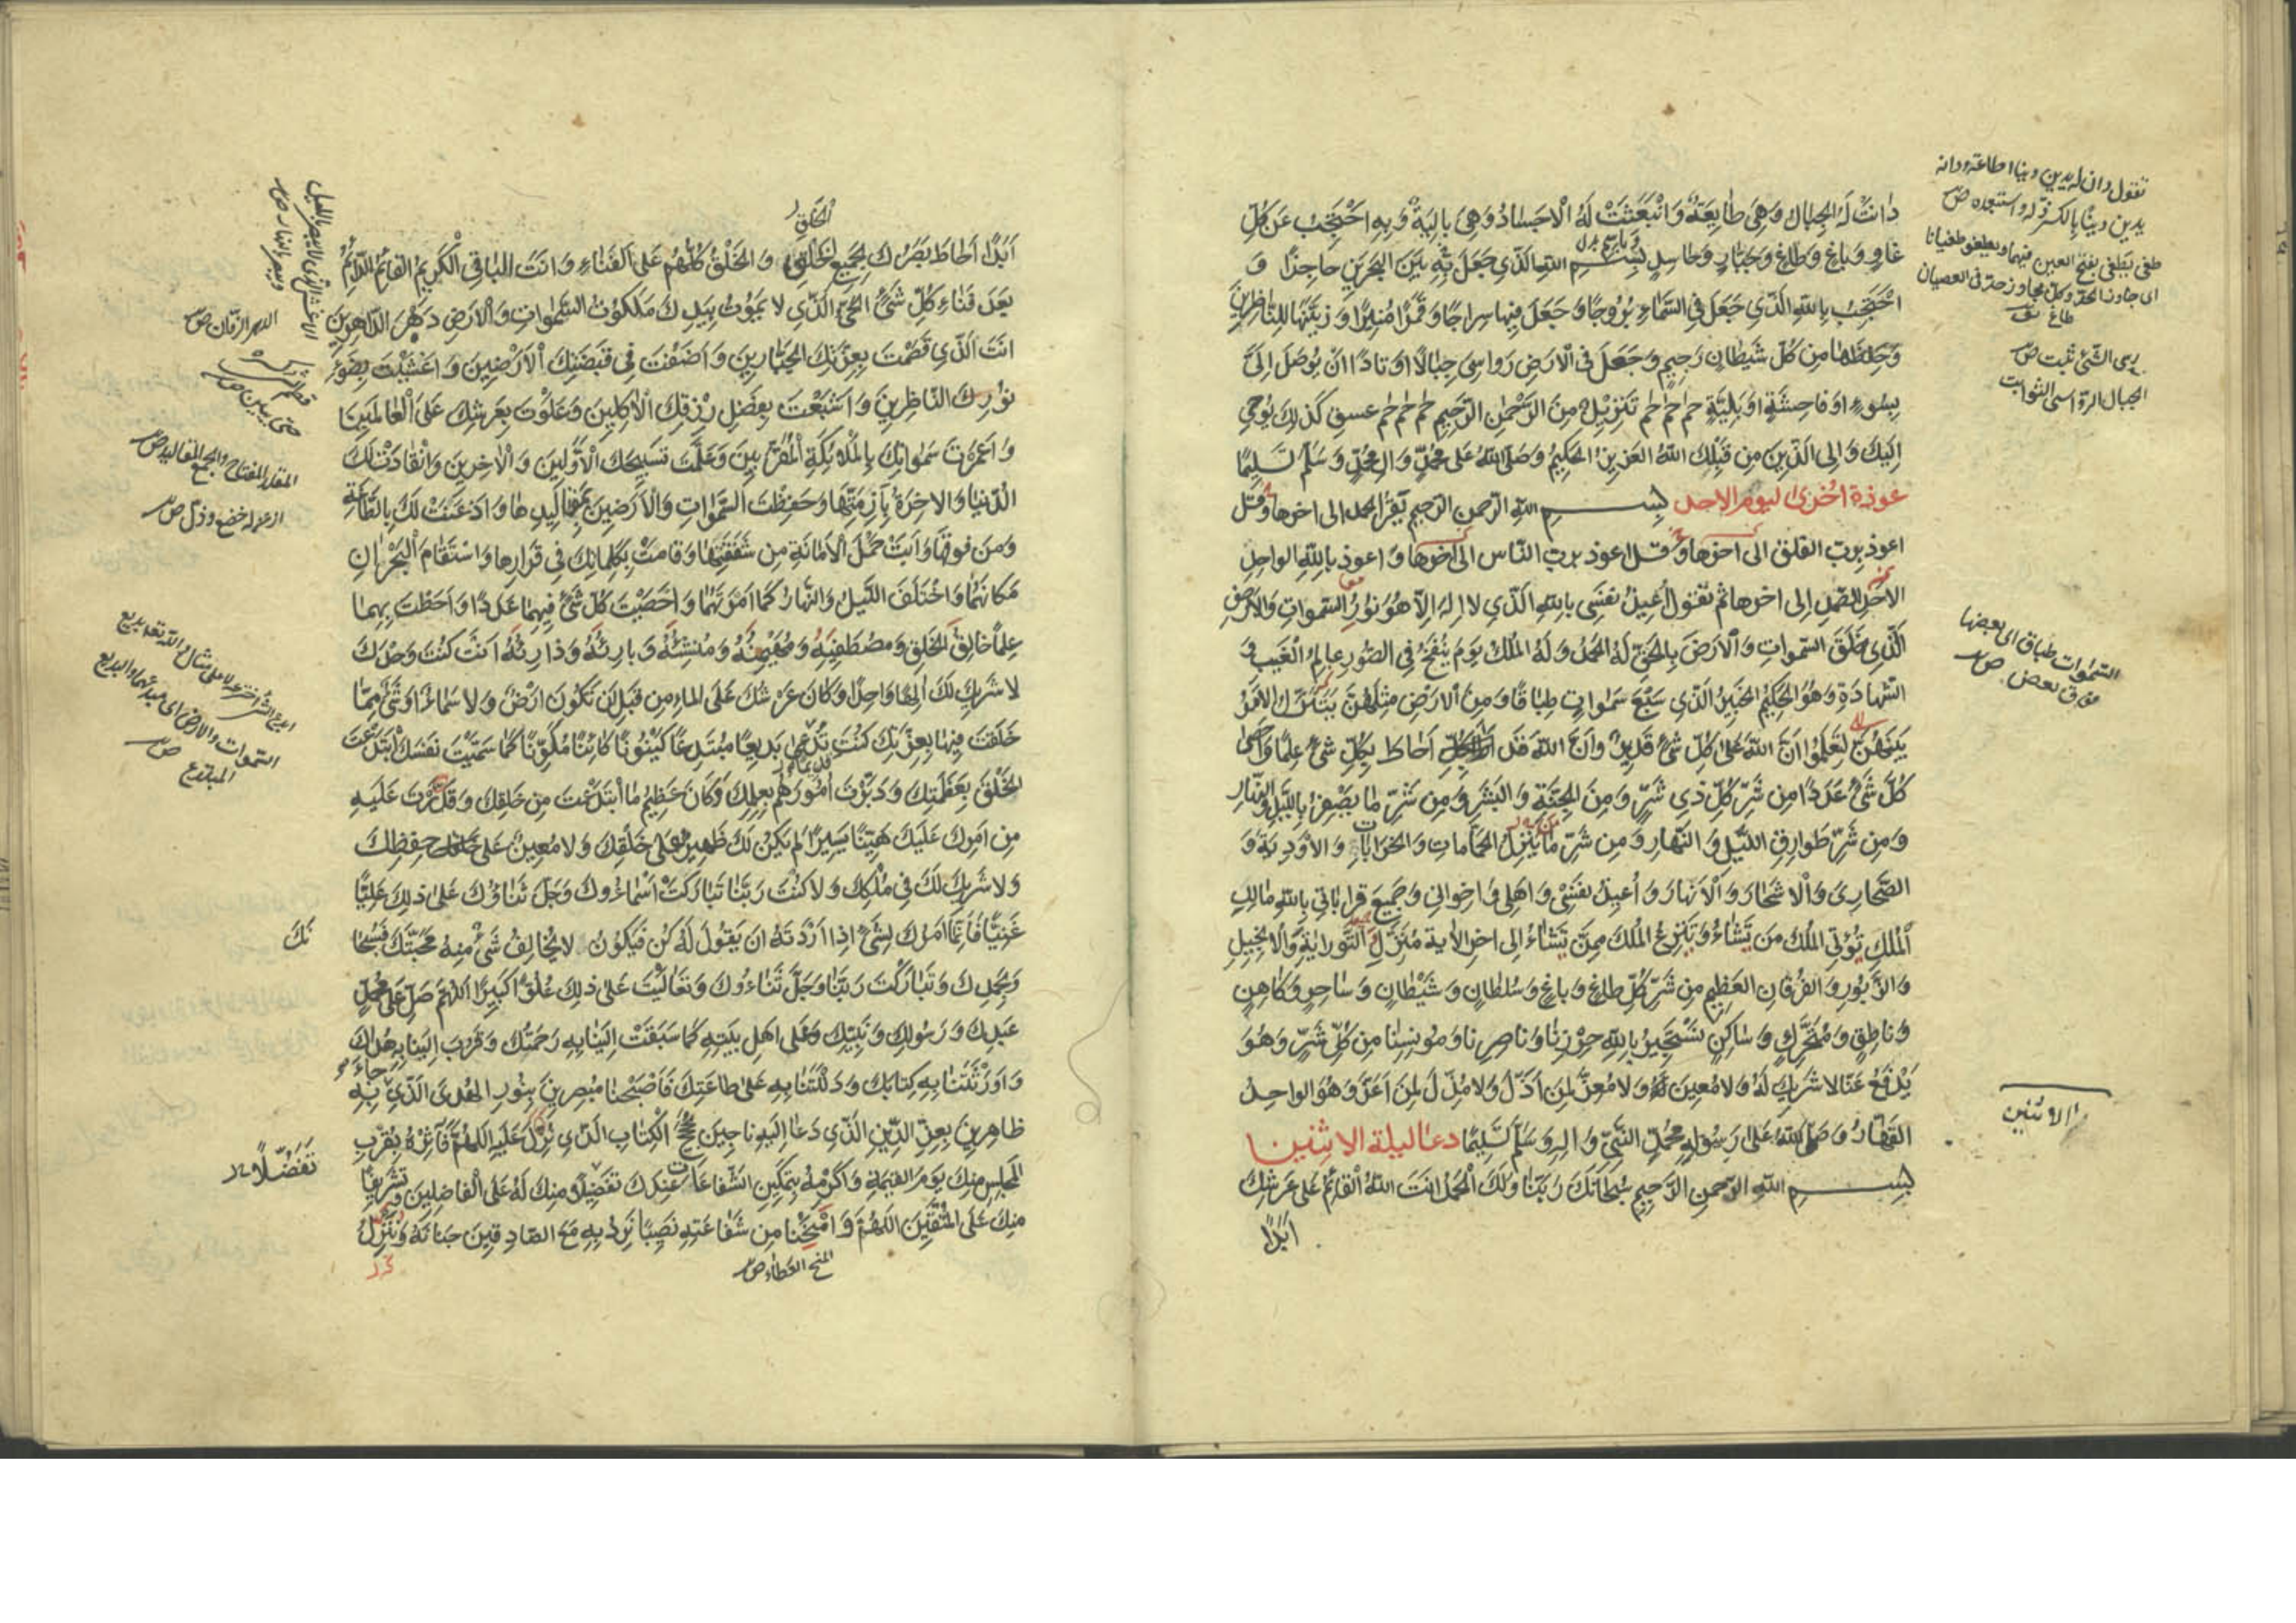 دٰانَتْ لَهُ الْجِبٰالُ وَهِيَ طٰايِعَةٌ وَانْبَعَثَتْ لَهُ الْاَجْسٰادُ وَهِيَ بٰالِيَةٌ وَبِهِ اَحْتَجِبُ عَنْ كُلِّ
غٰاوٍ وَبٰاغٍ وَطٰاغٍ وَجَبّٰارٍ وَحٰاسِدٍ بِسْمِ اللّٰهِ الَّذِي جَعَلَ بِهِ بَيْنَ الْبَحْرَيْنِ حٰاجِزًا وَ
اَحْتَجِبُ بِاللّٰهِ الَّذِي جَعَلَ فِي السَّمٰاءِ بُرُوجًا وَجَعَلَ فِيهٰا سِرٰاجًا وَقَمَرًا مُنِيرًا وَزَيَّنَهٰا لِلنّٰاظِرِينَ
وَحَفِظَهٰا مِنْ كُلِّ شَيْطٰانٍ رَجِيمٍ وَجَعَلَ فِي الْاَرْضِ رَوٰاسِيَ جِبٰالًا اَوْتٰادًا اَنْ يُوصَلَ اِلَيَّ
بِسُوءٍ اَوْ فٰاحِشَةٍ اَوْ بَلِيَّةٍ حٰم حٰم حٰم تَنْزِيلٌ مِنَ الرَّحْمٰنِ الرَّحِيمِ حٰم حٰم حٰم عسق كَذٰلِكَ يُوحِي
اِلَيْكَ وَاِلَى الَّذِينَ مِنْ قَبْلِكَ اللّٰهُ الْعَزِيزُ الْحَكِيمُ وَصَلَّى اللّٰهُ عَلىٰ مُحَمَّدٍ وَاٰلِ مُحَمَّدٍ وَسَلَّمَ تَسْلِيمًا
عوذة اُخرىٰ ليوم الاحد بسم اللّٰه الرحمن الرحيم يقرأ الحمد الى اخرها وقل
اعوذ برب الفلق الى اخرها وقل اعوذ برب الناس الى اخرها واعوذ باللّٰه الواحد
الاحد الصمد الى اخرها ثم تقول اُعِيذُ نَفْسِي بِاللّٰهِ الَّذِي لٰا اِلٰهَ اِلّٰا هُوَ نُورُ السَّمٰوٰاتِ وَالْاَرْضِ
الَّذِي خَلَقَ السَّمٰوٰاتِ وَالْاَرْضَ بِالْحَقِّ لَهُ الْحَمْدُ وَلَهُ الْمُلْكُ يَوْمَ يُنْفَخُ فِي الصُّورِ عٰالِمُ الْغَيْبِ وَ
الشَّهٰادَةِ وَهُوَ الْحَكِيمُ الْخَبِيرُ الَّذِي سَبْعَ سَمٰوٰاتٍ طِبٰاقًا وَمِنَ الْاَرْضِ مِثْلَهُنَّ يَتَنَزَّلُ الْاَمْرُ
بَيْنَهُنَّ لِتَعْلَمُوا اَنَّ اللّٰهَ عَلىٰ كُلِّ شَيْءٍ قَدِيرٌ وَاَنَّ اللّٰهَ قَدْ اَحٰاطَ بِكُلِّ شَيْءٍ عِلْمًا وَاَحْصىٰ
كُلَّ شَيْءٍ عَدَدًا مِنْ شَرِّ كُلِّ ذِي شَرٍّ وَمِنَ الْجِنَّةِ وَالْبَشَرِ وَمِنْ شَرِّ مٰا يَظْهَرُ بِاللَّيْلِ وَالنَّهٰارِ
وَمِنْ شَرِّ طَوٰارِقِ اللَّيْلِ وَالنَّهٰارِ وَمِنْ شَرِّ مٰا يَنْزِلُ الْحَمّٰامٰاتِ وَالْخَرٰابٰاتِ وَالْاَوْدِيَةَ وَ
الصَّحٰارِيَ وَالْاَشْجٰارَ وَالْاَنْهٰارَ وَاُعِيذُ نَفْسِي وَاَهْلِي وَاِخْوٰانِي وَجَمِيعَ قَرٰابٰاتِي بِاللّٰهِ مٰالِكِ
الْمُلْكِ تُؤْتِي الْمُلْكَ مَنْ تَشٰاءُ وَتَنْزِعُ الْمُلْكَ مِمَّنْ تَشٰاءُ اِلىٰ اخر الاٰية مُنَزِّلِ التَّوْرٰيةِ وَالْاِنْجِيلِ
وَالزَّبُورِ وَالْفُرْقٰانِ الْعَظِيمِ مِنْ شَرِّ كُلِّ طٰاغٍ وَبٰاغٍ وَسُلْطٰانٍ وَشَيْطٰانٍ وَسٰاحِرٍ وَكٰاهِنٍ
وَنٰاطِقٍ وَمُتَحَرِّكٍ وَسٰاكِنٍ نَسْتَجِيرُ بِاللّٰهِ حِرْزِنٰا وَنٰاصِرِنٰا وَمُونِسِنٰا مِنْ كُلِّ شَرٍّ وَهُوَ
يَدْفَعُ عَنّٰا لٰا شَرِيكَ لَهُ وَلٰا مُعِينَ لَهُ وَلٰا مُعِزَّ لِمَنْ اَذَلَّ وَلٰا مُذِلَّ لِمَنْ اَعَزَّ وَهُوَ الْوٰاحِدُ
الْقَهّٰارُ وَصَلَّى اللّٰهُ عَلىٰ رَسُولِهِ مُحَمَّدٍ النَّبِيِّ وَاٰلِهِ وَسَلَّمَ تَسْلِيمًا دعٰا ليلة الاثنين
بِسْمِ اللّٰهِ الرَّحْمٰنِ الرَّحِيمِ سُبْحٰانَكَ رَبَّنٰا وَلَكَ الْحَمْدُ اَنْتَ اللّٰهُ الْقٰائِمُ عَلىٰ عَرْشِكَ
اَبَدًا
تقول دان له يدين دينا اطاعه ودانه
يدين دينًا بالكسر اذله واستعبده ص
طغى يطغى بفتح العين فيهما ويطغو طغيانا
اى جاوز الحد وكل مجاوز حده فى العصيان
طاغ
رسى الشئ ثبت ص
الجبال الرواسى الثوابت
السموات طباق اى بعضها
فوق بعض ص
الاثنين
الخلق
اَبَدًا اَحٰاطَ بَصَرُكَ بِجَمِيعِ الْخَلْقِ وَالْخَلْقُ كُلُّهُمْ عَلَى الْفَنٰاءِ وَاَنْتَ الْبٰاقِي الْكَرِيمُ الْقٰائِمُ الدّٰائِمُ
بَعْدَ فَنٰاءِ كُلِّ شَيْءٍ الْحَيُّ الَّذِي لٰا يَمُوتُ بِيَدِكَ مَلَكُوتُ السَّمٰوٰاتِ وَالْاَرْضِ دَهْرَ الدّٰاهِرِينَ
اَنْتَ الَّذِي قَصَمْتَ بِعِزَّتِكَ الْجَبّٰارِينَ وَاَضَفْتَ فِي قَبْضَتِكَ الْاَرَضِينَ وَاَغْشَيْتَ بِضَوْءِ
نُورِكَ النّٰاظِرِينَ وَاَشْبَعْتَ بِفَضْلِ رِزْقِكَ الْاٰكِلِينَ وَعَلَوْتَ بِعَرْشِكَ عَلَى الْعٰالَمِينَ
وَاَعْمَرْتَ سَمٰوٰاتِكَ بِالْمَلٰائِكَةِ الْمُقَرَّبِينَ وَعَلَّمْتَ تَسْبِيحَكَ الْاَوَّلِينَ وَالْاٰخِرِينَ وَانْقٰادَتْ لَكَ
الدُّنْيٰا وَالْاٰخِرَةُ بِاَزِمَّتِهٰا وَحَفِظْتَ السَّمٰوٰاتِ وَالْاَرَضِينَ بِمَقٰالِيدِهٰا وَاَذْعَنَتْ لَكَ بِالطّٰاعَةِ
وَمَنْ فَوْقَهٰا وَاَبَتْ حَمْلَ الْاَمٰانَةِ مِنْ شَفَقَتِهٰا وَقٰامَتْ بِكَلِمٰاتِكَ فِي قَرٰارِهٰا وَاسْتَقٰامَ الْبَحْرٰانِ
مَكٰانَهُمٰا وَاخْتَلَفَ اللَّيْلُ وَالنَّهٰارُ كَمٰا اَمَرْتَهُمٰا وَاَحْصَيْتَ كُلَّ شَيْءٍ فِيهِمٰا عَدَدًا وَاَحَطْتَ بِهِمٰا
عِلْمًا خٰالِقُ الْخَلْقِ وَمُصْطَفِيهِ وَمُهَيْمِنُهُ وَمُنْشِئُهُ وَبٰارِئُهُ وَذٰارِئُهُ اَنْتَ كُنْتَ وَحْدَكَ
لٰا شَرِيكَ لَكَ اِلٰهًا وَاحِدًا وَكٰانَ عَرْشُكَ عَلَى الْمٰاءِ مِنْ قَبْلِ اَنْ تَكُونَ اَرْضٌ وَلٰا سَمٰاءٌ اَوْ شَيْءٌ مِمّٰا
خَلَقْتَ فِيهِمٰا بِعِزَّتِكَ كُنْتَ تُدْعىٰ بَدِيعًا مُبْتَدِعًا كَيْنُونًا كٰائِنًا مُكَوِّنًا كَمٰا سَمَّيْتَ نَفْسَكَ ابْتَدَعْتَ
الْخَلْقَ بِعَظَمَتِكَ وَدَبَّرْتَ اُمُورَهُمْ بِعِلْمِكَ وَكٰانَ عَظِيمُ مٰا ابْتَدَعْتَ مِنْ خَلْقِكَ وَقَدَّرْتَ عَلَيْهِ
مِنْ اَمْرِكَ عَلَيْكَ هَيِّنًا يَسِيرًا لَمْ يَكُنْ لَكَ ظَهِيرٌ عَلىٰ خَلْقِكَ وَلٰا مُعِينٌ عَلىٰ حِفْظِكَ
وَلٰا شَرِيكٌ لَكَ فِي مُلْكِكَ وَلٰا كُنْتَ رَبَّنٰا تَبٰارَكَتْ اَسْمٰاءُوكَ وَجَلَّ ثَنٰاؤُكَ عَلىٰ ذٰلِكَ عَلِيًّا
غَنِيًّا فَاِنَّمٰا اَمْرُكَ لِشَيْءٍ اِذٰا اَرَدْتَهُ اَنْ يَقُولَ لَهُ كُنْ فَيَكُونُ لٰا يُخٰالِفُ شَيْءٌ مِنْهُ مَحَبَّتَكَ فَسُبْحٰا
وَبِحَمْدِكَ وَتَبٰارَكْتَ رَبَّنٰا وَجَلَّ ثَنٰاءُوكَ وَتَعٰالَيْتَ عَلىٰ ذٰلِكَ عُلُوًّا كَبِيرًا اَللّٰهُمَّ صَلِّ عَلىٰ مُحَمَّدٍ
عَبْدِكَ وَرَسُولِكَ وَنَبِيِّكَ وَعَلىٰ اَهْلِ بَيْتِهِ كَمٰا سَبَقَتْ اِلَيْنٰا بِهِ رَحْمَتُكَ وَقَرُبَ اِلَيْنٰا بِهِ هُدٰاكَ
وَاَوْرَثْتَنٰا بِهِ كِتٰابَكَ وَدَلَلْتَنٰا بِهِ عَلىٰ طٰاعَتِكَ فَاَصْبَحْنٰا مُبْصِرِينَ بِنُورِ الْهُدَى الَّذِي جٰاءَ بِهِ
ظٰاهِرِينَ بِعِزِّ الدِّينِ الَّذِي دَعٰا اِلَيْهِ نٰاجِينَ بِحُجَجِ الْكِتٰابِ الَّذِي نُزِّلَ عَلَيْهِ اَللّٰهُمَّ فَاٰثِرْهُ بِقُرْبِ
الْمَجْلِسِ مِنْكَ يَوْمَ الْقِيٰمَةِ وَاَكْرِمْهُ بِتَمْكِينِ الشَّفٰاعٰاتِ عِنْدَكَ تَفْضِيلًا مِنْكَ لَهُ عَلَى الْفٰاضِلِينَ وَتَشْرِيفًا
مِنْكَ عَلَى الْمُتَّقِينَ اَللّٰهُمَّ وَامْنَحْنٰا مِنْ شَفٰاعَتِهِ نَصِيبًا نَرِدُ بِهِ مَعَ الصّٰادِقِينَ جَنٰانَهُ وَنَنْزِلُ
المنح العطاء ص
الدهر الزمان ص
المقلد المفتاح والجمع المقاليد ص
اذعن له خضع وذل ص
السموات والارض اى مبدئهما والبديع
المبتدع ص
نَكَ
تَفَضُّلًا